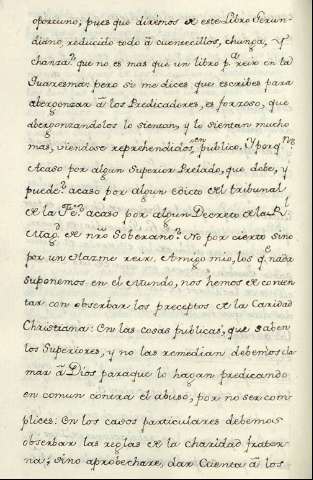 oportuno; pues que diremos de este Libro Gerun-
diano, reducido todo â cuentecillos, chunga, Y
chanza? que no es mas que un libro p.ª reir en la
Quaresma: pero si me dices que escribes para
abergonzar â los Predicadores, es forzoso, que
abergonzandolos lo sientan, y lo sientan mucho
mas, viendose reprehendidos en publico. Y por qn.?
Acaso por algun Superior Prelado, que debe, y
puede? acaso por algun edicto del tribunal
de la Fé? acaso por algun Decreto de la Rl.
Magd. de nrõ Soberano? No por cierto sino
por un Hazme reir. Amigo mio, los qe. nada
suponemos en el Mundo, nos hemos de conten
tar con obserbar los preceptos de la Caridad
Christiana: En las cosas publicas, que saben
los Superiores, y no las remedian debemos cla
mar â Dios paraque lo hagan predicando
en comun contra el abuso, por no ser com
plices: En los casos particulares debemos
obserbar las reglas de la charidad frater-
na; sino aprobechare, dar Cuenta â los